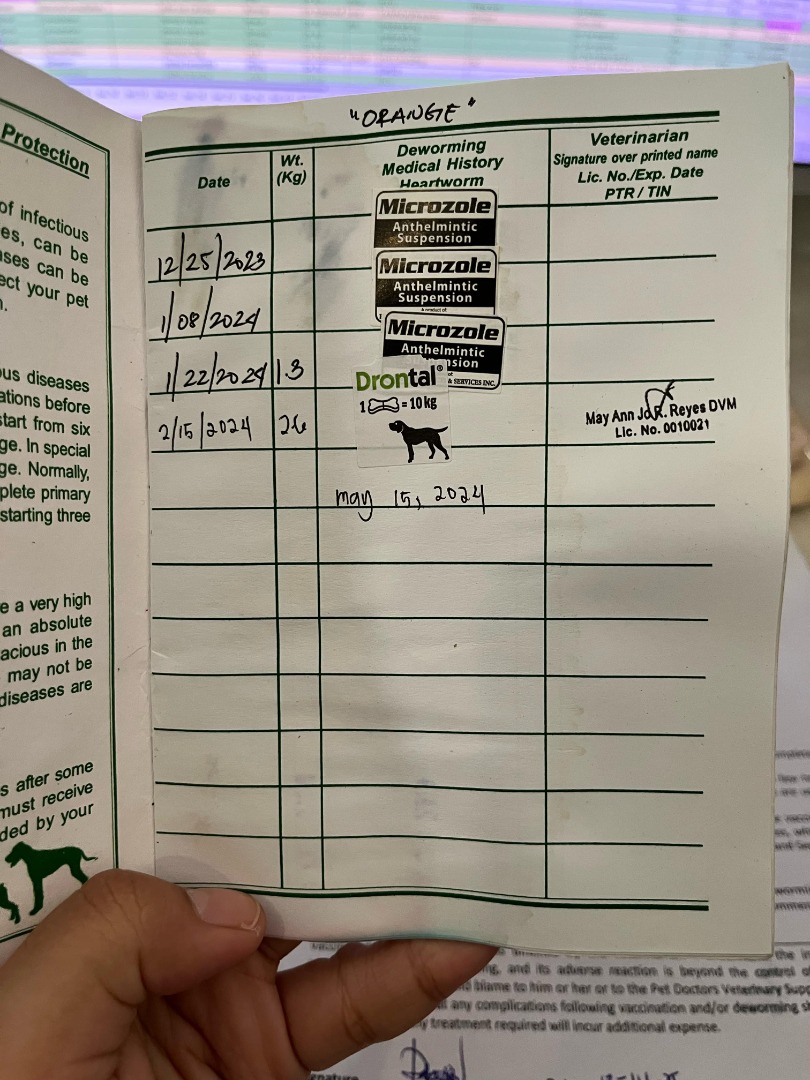 Protection
of infectious
es, can be
ases can be
ect your pet
ous diseases
ations before
start from six
ge. In special
ge. Normally,
plete primary
starting three
e a very high
an absolute
acious in the
may not be
diseases are
s after some
must receive
ded by your
"ORANGE"
Date
Wt.
(Kg)
Deworming
Medical History
Heartworm
Veterinarian
Signature over printed name
Lic. No./Exp. Date
PTR / TIN
Microzole
Anthelmintic
Suspension
12/25/2023
Microzole
Anthelmintic
Suspension
1/08/2024
Microzole
Anthelmintic
nsion
& SERVICES INC.
1/22/2024 1.3
Drontal®
1 = 10 kg
2/15/2024 2.6
May Ann Jo R. Reyes DVM
Lic. No. 0010021
may 15, 2024
the in
ng, and its adverse reaction is beyond the control of
blame to him or her or to the Pet Doctors Veterinary Supp
any complications following vaccination and/or deworming s
y treatment required will incur additional expense.